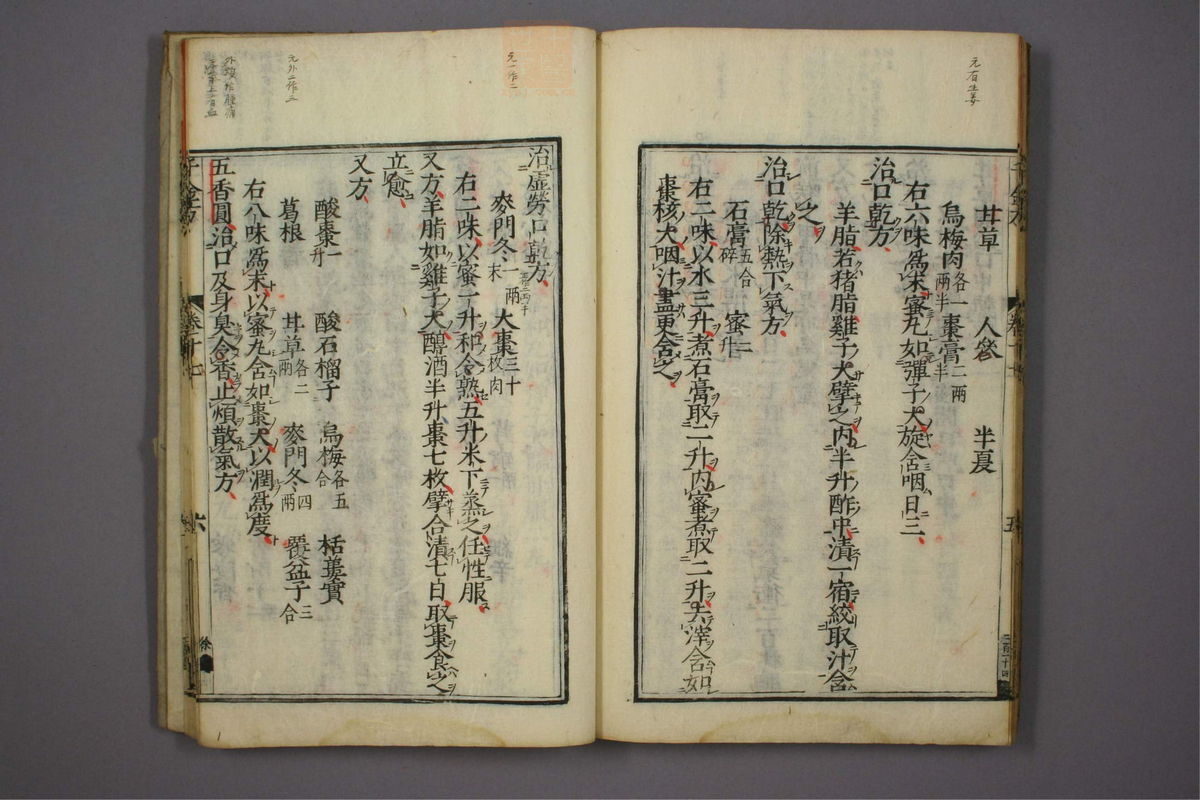 元有生姜
甘草 人參 半夏
烏梅肉各一兩半 棗膏二兩半
右六味爲末蜜丸如彈子大旋含咽日三
治口乾方
羊脂若猪脂雞子大擘之内半升酢中漬一宿絞取汁含
之
治口乾除熱下氣方
石膏五合碎 蜜二升
右二味以水三升煮石膏取二升内蜜煮取二升去滓含如
棗核大咽汁盡更含之
元一作二
元外二作三
治虛勞口乾方
麥門冬一兩末 大棗三十枚肉
右二味以蜜一升和令熟五升米下蒸之任性服
又方羊脂如雞子大醇酒半升棗七枚擘合漬七日取棗食之
立愈
又方
酸棗一升 酸石榴子 烏梅各五合 栝蔞實
葛根 甘草各二兩 麥門冬四兩 覆盆子三合
右八味爲末以蜜丸含如棗大以潤爲度
五香圓治口及身臭令香止煩散氣方
卷十七
六